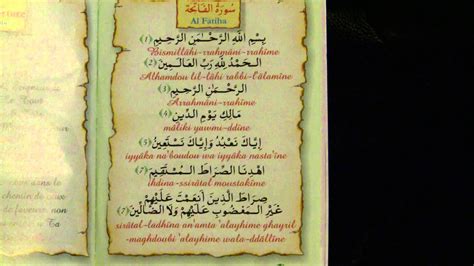 سُورَةُ الفَاتِحَةِ
Al Fatiha
بِسْمِ اللَّهِ الرَّحْمَـٰنِ الرَّحِيمِ (1)
Bismillâhi-rrahmâni-rrahîme
الْحَمْدُ لِلَّهِ رَبِّ الْعَالَمِينَ (2)
Alhamdou lil-lâhi rabbi-l'âlamîne
الرَّحْمَـٰنِ الرَّحِيمِ (3)
Arrahmâni-rrahîme
مَالِكِ يَوْمِ الدِّينِ (4)
mâliki yawmi-ddîne
إِيَّاكَ نَعْبُدُ وَإِيَّاكَ نَسْتَعِينُ (5)
iyyâka na'boudou wa iyyâka nasta'îne
اهْدِنَا الصِّرَاطَ الْمُسْتَقِيمَ (6)
ihdina-ssirâtal moustakîme
صِرَاطَ الَّذِينَ أَنْعَمْتَ عَلَيْهِمْ
غَيْرِ الْمَغْضُوبِ عَلَيْهِمْ وَلَا الضَّالِّينَ (7)
sirâtal-ladhîna an'amta 'alayhime ghayril
-maghdoubi 'alayhime wala-ddâllîne